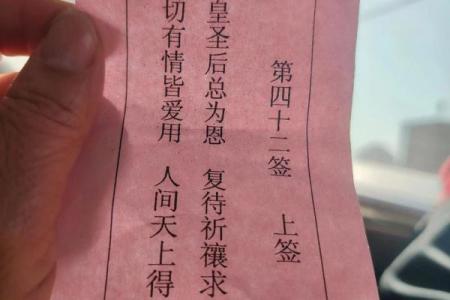 第四十二签 上签
皇圣后总为恩 复待祈禳求
切有情皆爱用 人间天上得